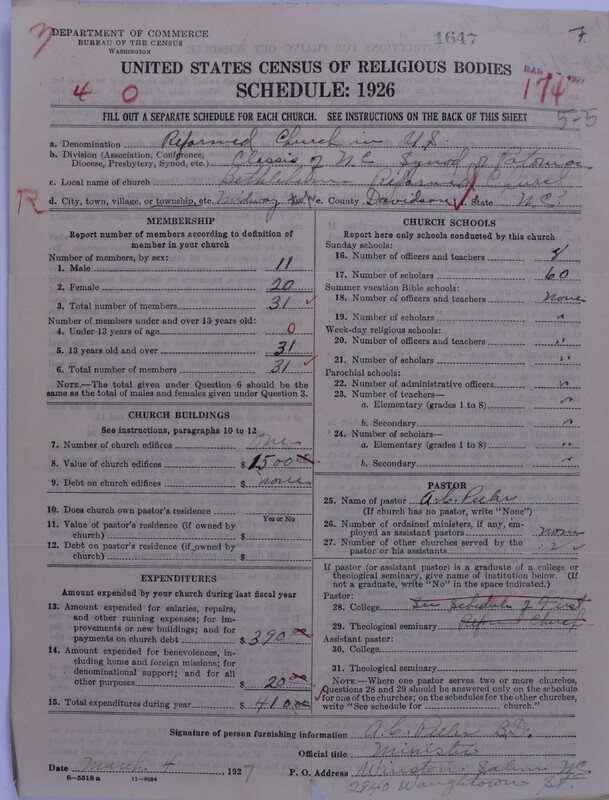 DEPARTMENT OF COMMERCE
BUREAU OF THE CENSUS
WASHINGTON
1647
7
UNITED STATES CENSUS OF RELIGIOUS BODIES
SCHEDULE: 1926
4 0
174
5-5
FILL OUT A SEPARATE SCHEDULE FOR EACH CHURCH. SEE INSTRUCTIONS ON THE BACK OF THIS SHEET
a. Denomination Reformed Church in U.S.
b. Division (Association, Conference, Diocese, Presbytery, Synod, etc.) Classis of N.C. Synod of Potomac
c. Local name of church Bethlehem Reformed Church
d. City, town, village, or township, etc. Midway e. County Davidson f. State N.C.
R
MEMBERSHIP
Report number of members according to definition of member in your church
Number of members, by sex:
1. Male 11
2. Female 20
3. Total number of members 31
Number of members under and over 13 years old:
4. Under 13 years of age 0
5. 13 years old and over 31
6. Total number of members 31
NOTE.—The total given under Question 6 should be the same as the total of males and females given under Question 3.
CHURCH BUILDINGS
See instructions, paragraphs 10 to 12
7. Number of church edifices One
8. Value of church edifices $1500
9. Debt on church edifices $ none
10. Does church own pastor's residence
Yes or No
11. Value of pastor's residence (if owned by church) $
12. Debt on pastor's residence (if owned by church) $
EXPENDITURES
Amount expended by your church during last fiscal year
13. Amount expended for salaries, repairs, and other running expenses; for improvements or new buildings; and for payments on church debt $ 390.00
14. Amount expended for benevolences, including home and foreign missions; for denominational support; and for all other purposes $ 20.00
15. Total expenditures during year $ 410.00
CHURCH SCHOOLS
Report here only schools conducted by this church
Sunday schools:
16. Number of officers and teachers 8
17. Number of scholars 60
Summer vacation Bible schools:
18. Number of officers and teachers none
19. Number of scholars "
Week-day religious schools:
20. Number of officers and teachers "
21. Number of scholars "
Parochial schools:
22. Number of administrative officers "
23. Number of teachers—
a. Elementary (grades 1 to 8) "
b. Secondary "
24. Number of scholars—
a. Elementary (grades 1 to 8) "
b. Secondary "
PASTOR
25. Name of pastor A.C. Peeler
(If church has no pastor, write "None")
26. Number of ordained ministers, if any, employed as assistant pastors none
27. Number of other churches served by the pastor or his assistants 2
If pastor (or assistant pastor) is a graduate of a college or theological seminary, give name of institution below. (If not a graduate, write "No" in the space indicated.)
Pastor:
28. College See Schedule of First
29. Theological seminary Reformed Church
Assistant pastor:
30. College
31. Theological seminary
NOTE.—Where one pastor serves two or more churches, Questions 28 and 29 should be answered only on the schedule for one of the churches; on the schedules for the other churches, write "See schedule for church."
Signature of person furnishing information A.C. Peeler B.D.
Official title Minister
Date March 4, 1927
P. O. Address Winston Salem N.C.
2940 Waughtown St.
8—5518a 11—9264